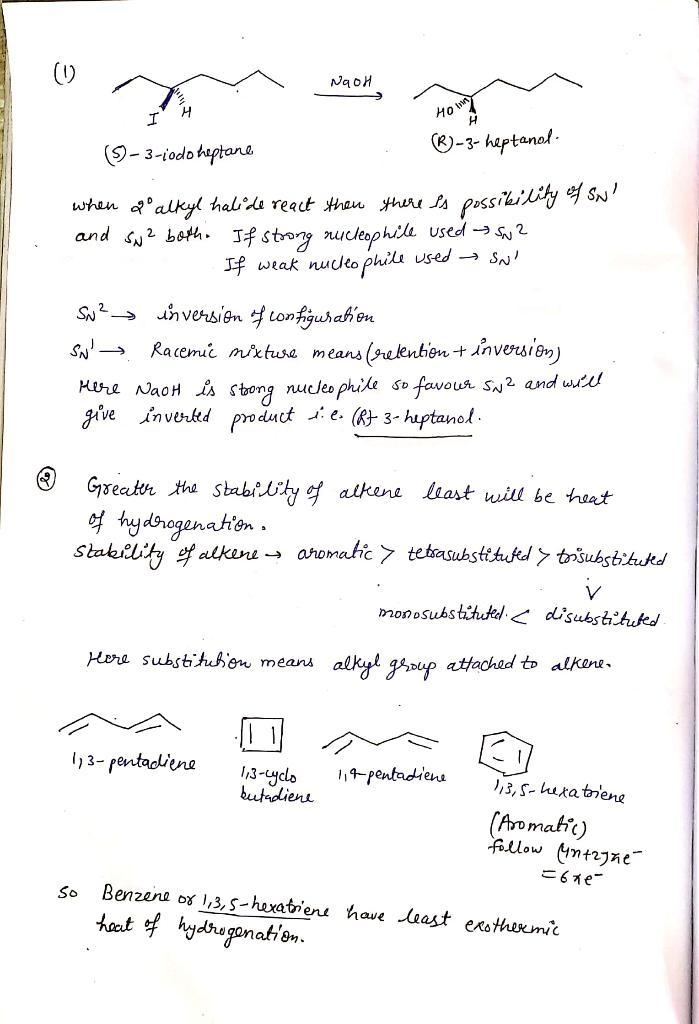 (1)
NaOH
I H
HO H
(S)-3-iodoheptane
(R)-3-heptanol.
when 2° alkyl halide react then there is possibility of SN1
and SN2 both. If strong nucleophile used → SN2
If weak nucleophile used → SN1
SN2 → inversion of configuration
SN1 → Racemic mixture means (retention + inversion)
Here NaOH is strong nucleophile so favour SN2 and will
give inverted product i.e. (R)-3-heptanol.
(2) Greater the stability of alkene least will be heat
of hydrogenation.
stability of alkene → aromatic > tetrasubstituted > trisubstituted
∨
monosubstituted. < disubstituted
Here substitution means alkyl group attached to alkene.
1,3-pentadiene
1,3-cyclo
butadiene
1,4-pentadiene
1,3,5-hexatriene
(Aromatic)
follow (4n+2)πe-
=6πe-
So Benzene or 1,3,5-hexatriene have least exothermic
heat of hydrogenation.